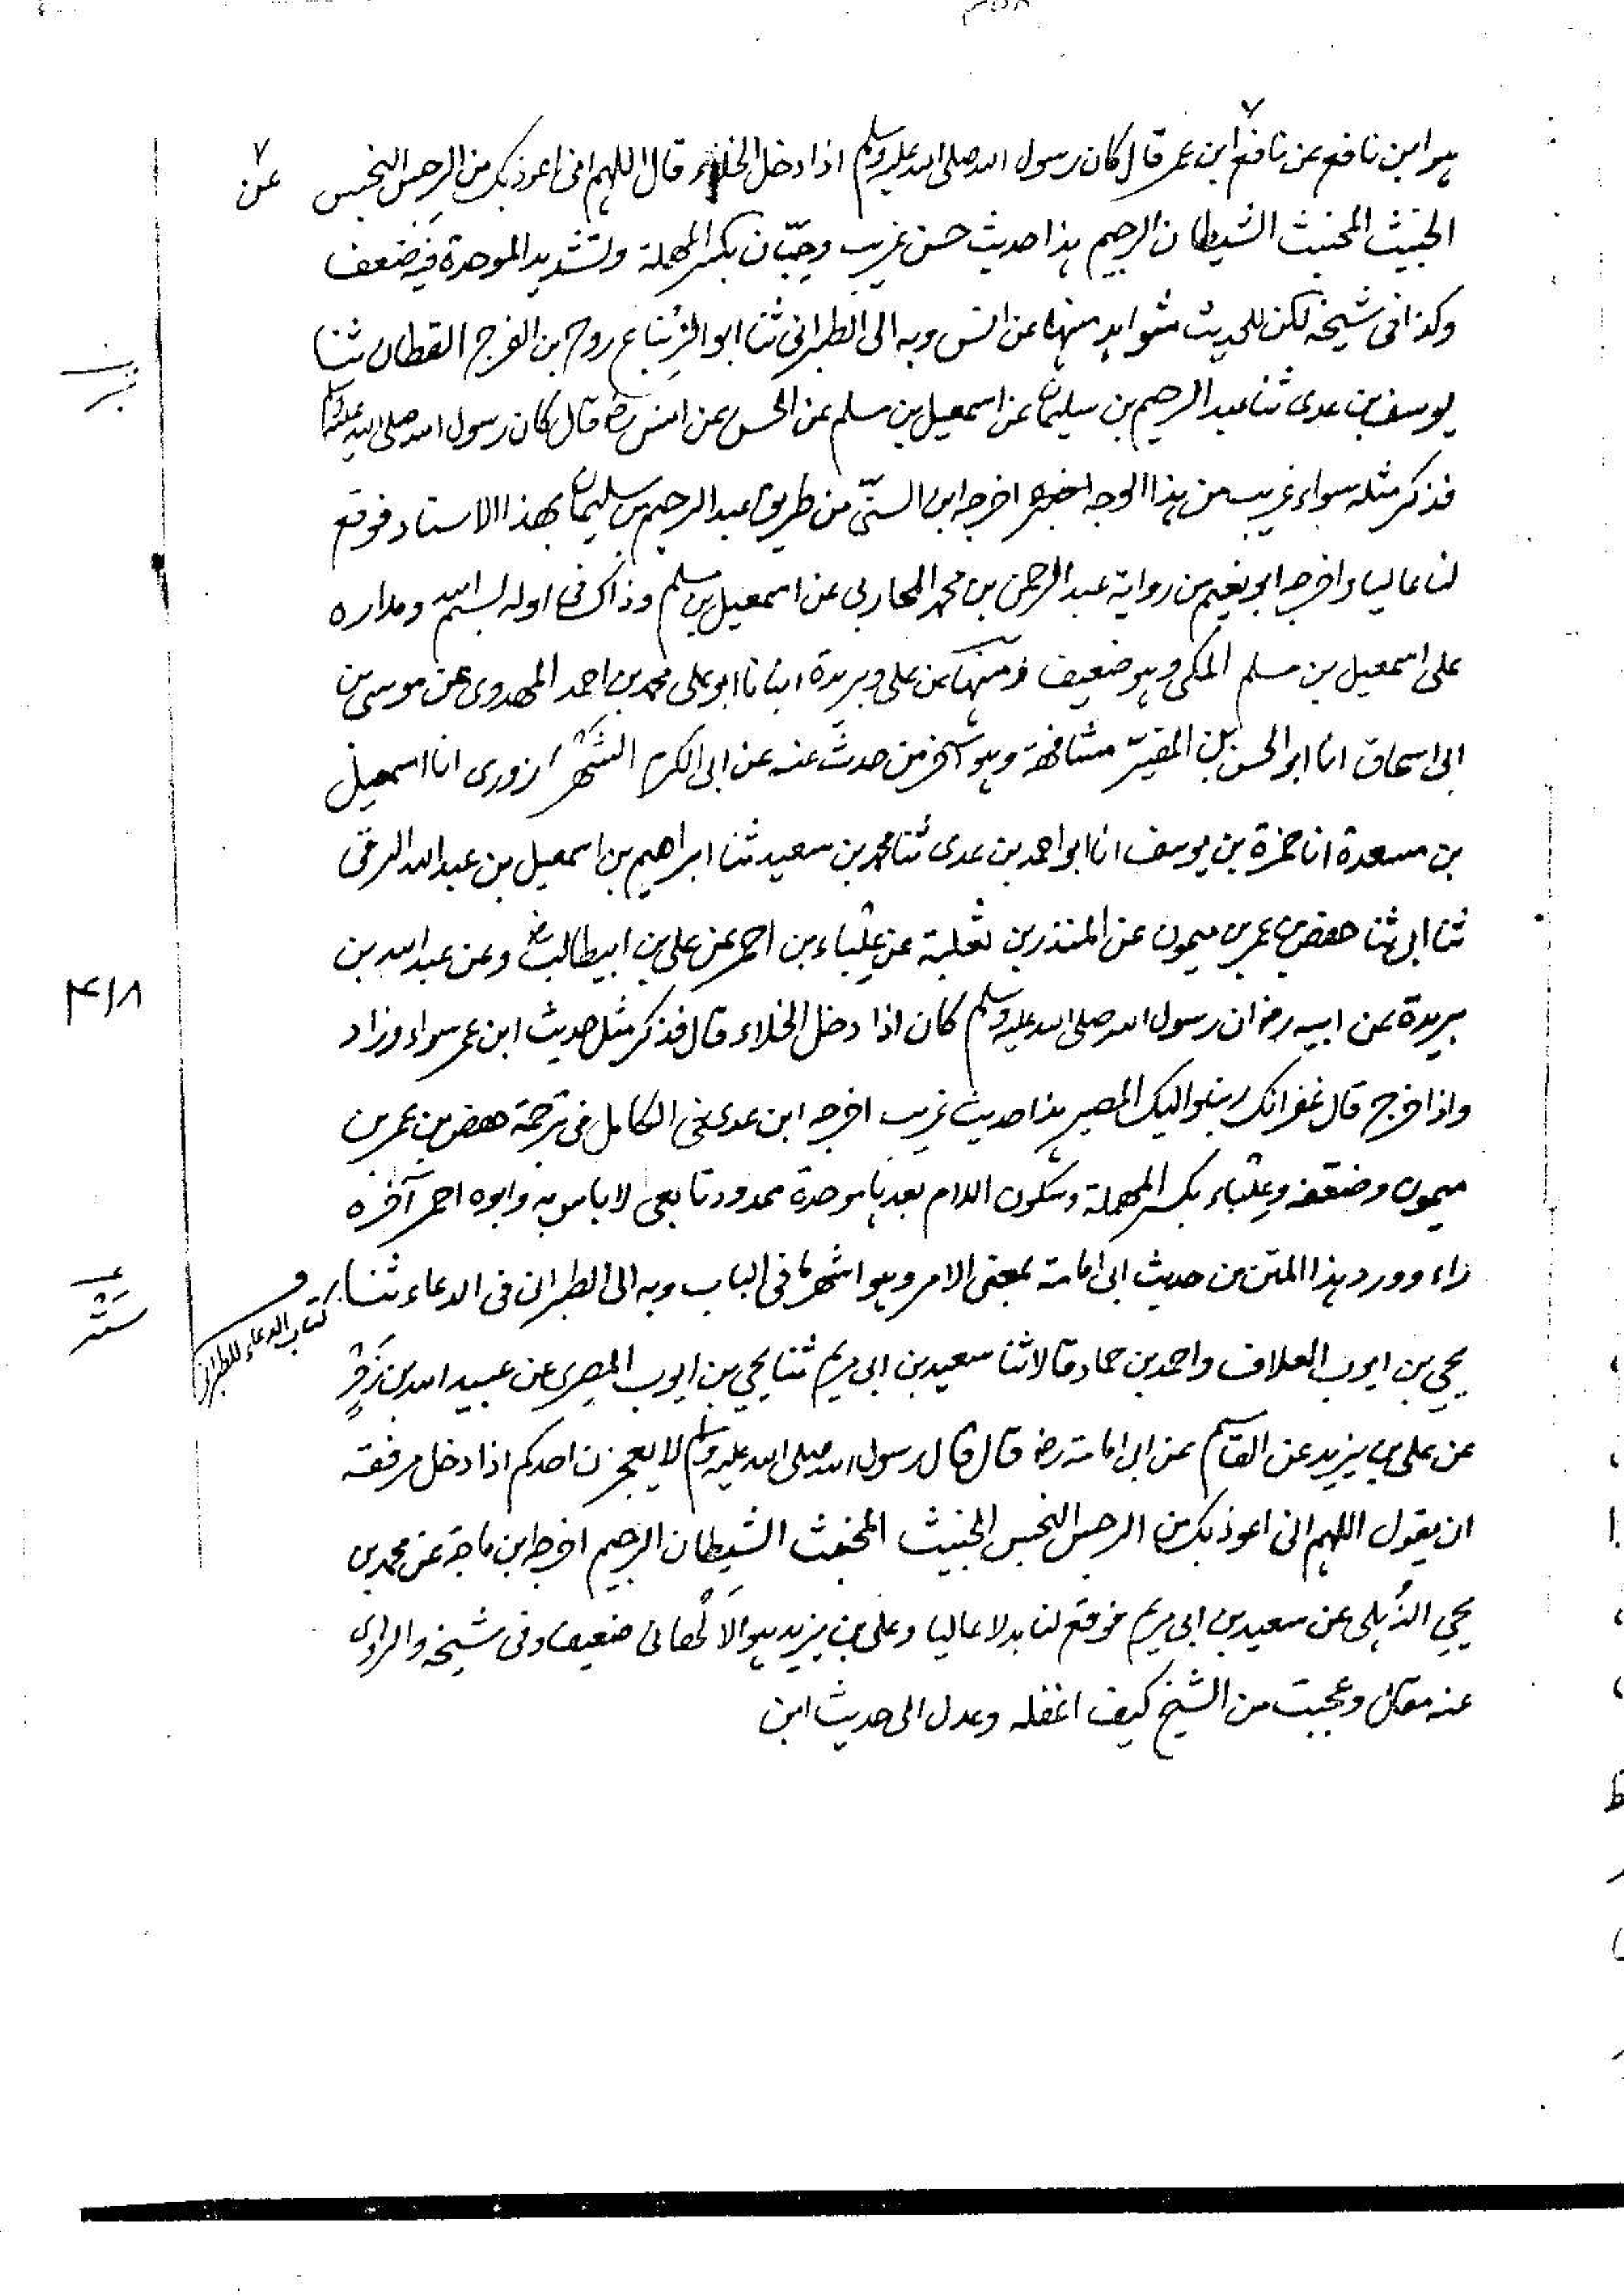 هو ابن نافع عن نافع ابن عمر قال كان رسول الله صلى الله عليه وسلم اذا دخل الخلاء قال اللهم انى اعوذ بك من الرجس النجس
عن
الخبيث المخبث الشيطان الرجيم هذا حديث حسن غريب وحِبّان بكسر المهملة وتشديد الموحدة فيه ضعف
وكذا فى شيخه لكن للحديث شواهد منها عن انس وبه الى الطبرانى ثنا ابو الزِنباع روح بن الفرج القطان ثنا
يوسف بن عدى ثنا عبد الرحيم بن سليمان عن اسمعيل بن مسلم عن الحسن عن انس رض قال كان رسول الله صلى الله عليه وسلم
فذكر مثله سواء غريب من هذا الوجه اخرجه ابن السنّى من طريق عبد الرحيم بن سليمان بهذا الاسناد فوقع
لنا عاليا واخرجه ابو نعيم من رواية عبد الرحمن بن محمد المحاربى عن اسمعيل بن مسلم وزاد فى اوله بسم الله ومداره
على اسمعيل بن مسلم المكى وهو ضعيف ومنها عن على وبريدة انبانا ابو على محمد بن احمد المهدوى عن موسى بن
ابى اسحاق انا ابو الحسن بن المقيّر مشافهة وهو آخر من حدث عنه عن ابى الكرم الشَهْرَزورى انا اسمعيل
بن مسعدة انا حمزة بن يوسف انا ابو احمد بن عدى ثنا محمد بن سعيد ثنا ابراهيم بن اسمعيل بن عبد الله الرقى
ثنا ابى ثنا حفص بن عمر بن ميمون عن المنذر بن ثعلبة عن عِلْباء بن احمر عن على بن ابيطالب رض وعن عبد الله بن
بريدة عن ابيه رض ان رسول الله صلى الله عليه وسلم كان اذا دخل الخلاء قال فذكر مثل حديث ابن عمر سواء وزاد
واذا خرج قال غفرانك ربنا واليك المصير هذا حديث غريب اخرجه ابن عدى فى الكامل فى ترجمة حفص بن عمر بن
ميمون وضعّفه وعِلْباء بكسر المهملة وسكون اللام بعدها موحدة ممدود تابعى لا باس به وابوه احمر آخره
راء وورد هذا المتن من حديث ابى امامة بمعنى الامر وهو اشهرها فى الباب وبه الى الطبرانى فى الدعاء ثنا
كتاب الدعاء للطبرانى
يحيى بن ايوب العلاف واحمد بن حماد قالا ثنا سعيد بن ابى مريم ثنا يحيى بن ايوب المصرى عن عبيد الله بن زَحْرٍ
عن على بن يزيد عن القاسم عن ابى امامة رض قال قال رسول الله صلى الله عليه وسلم لا يعجزن احدكم اذا دخل مرفقه
ان يقول اللهم انى اعوذ بك من الرجس النجس الخبيث المخبث الشيطان الرجيم اخرجه ابن ماجة عن محمد بن
يحيى الذُهلى عن سعيد بن ابى مريم فوقع لنا بدلا عاليا وعلى بن يزيد هو الاَلْهانى ضعيف وفى شيخه والراوى
عنه مقال وعجبت من الشيخ كيف اغفله وعدل الى حديث ابن
۴۱۸